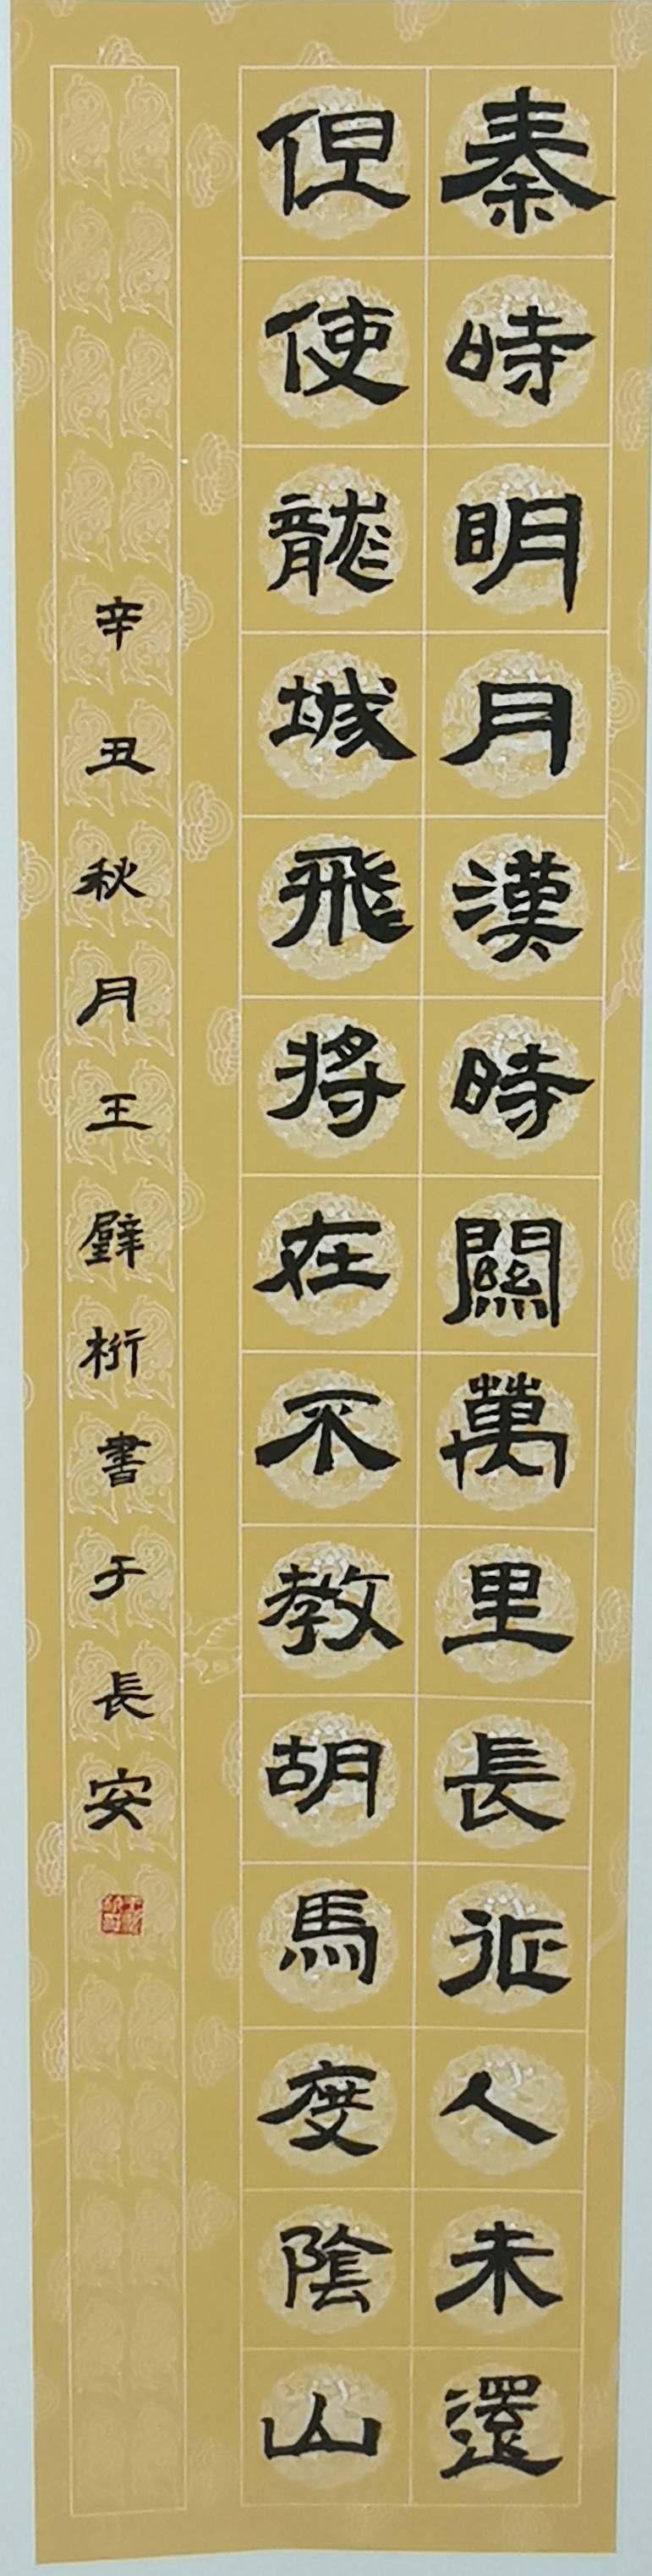 秦時明月漢時關萬里長征人未還
但使龍城飛將在不教胡馬度陰山
辛丑秋月王璧桁書于長安